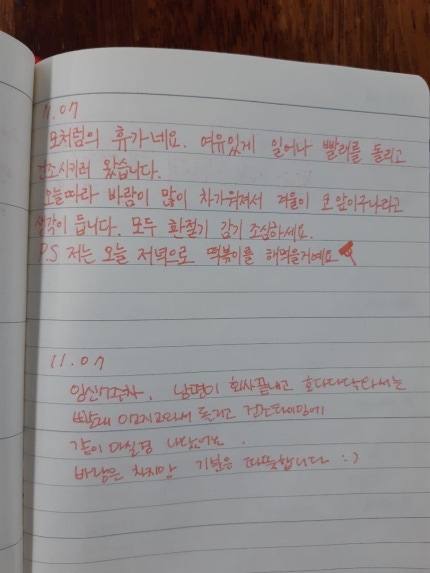 11.07
모처럼의 휴가네요. 여유있게 일어나 빨래를 돌리고
건조시키러 왔습니다.
오늘따라 바람이 많이 차가워져서 겨울이 코앞이구나라고
생각이 듭니다. 모두 환절기 감기 조심하세요.
P.S 저는 오늘 저녁으로 떡볶이를 해먹을거예요
11.07
임신7주차, 남편이 회사끝나고 호다다닥
빨래 돌리고 건조타임에
같이 나왔어요.
바람은 차지만 기분은 따뜻합니다 :)